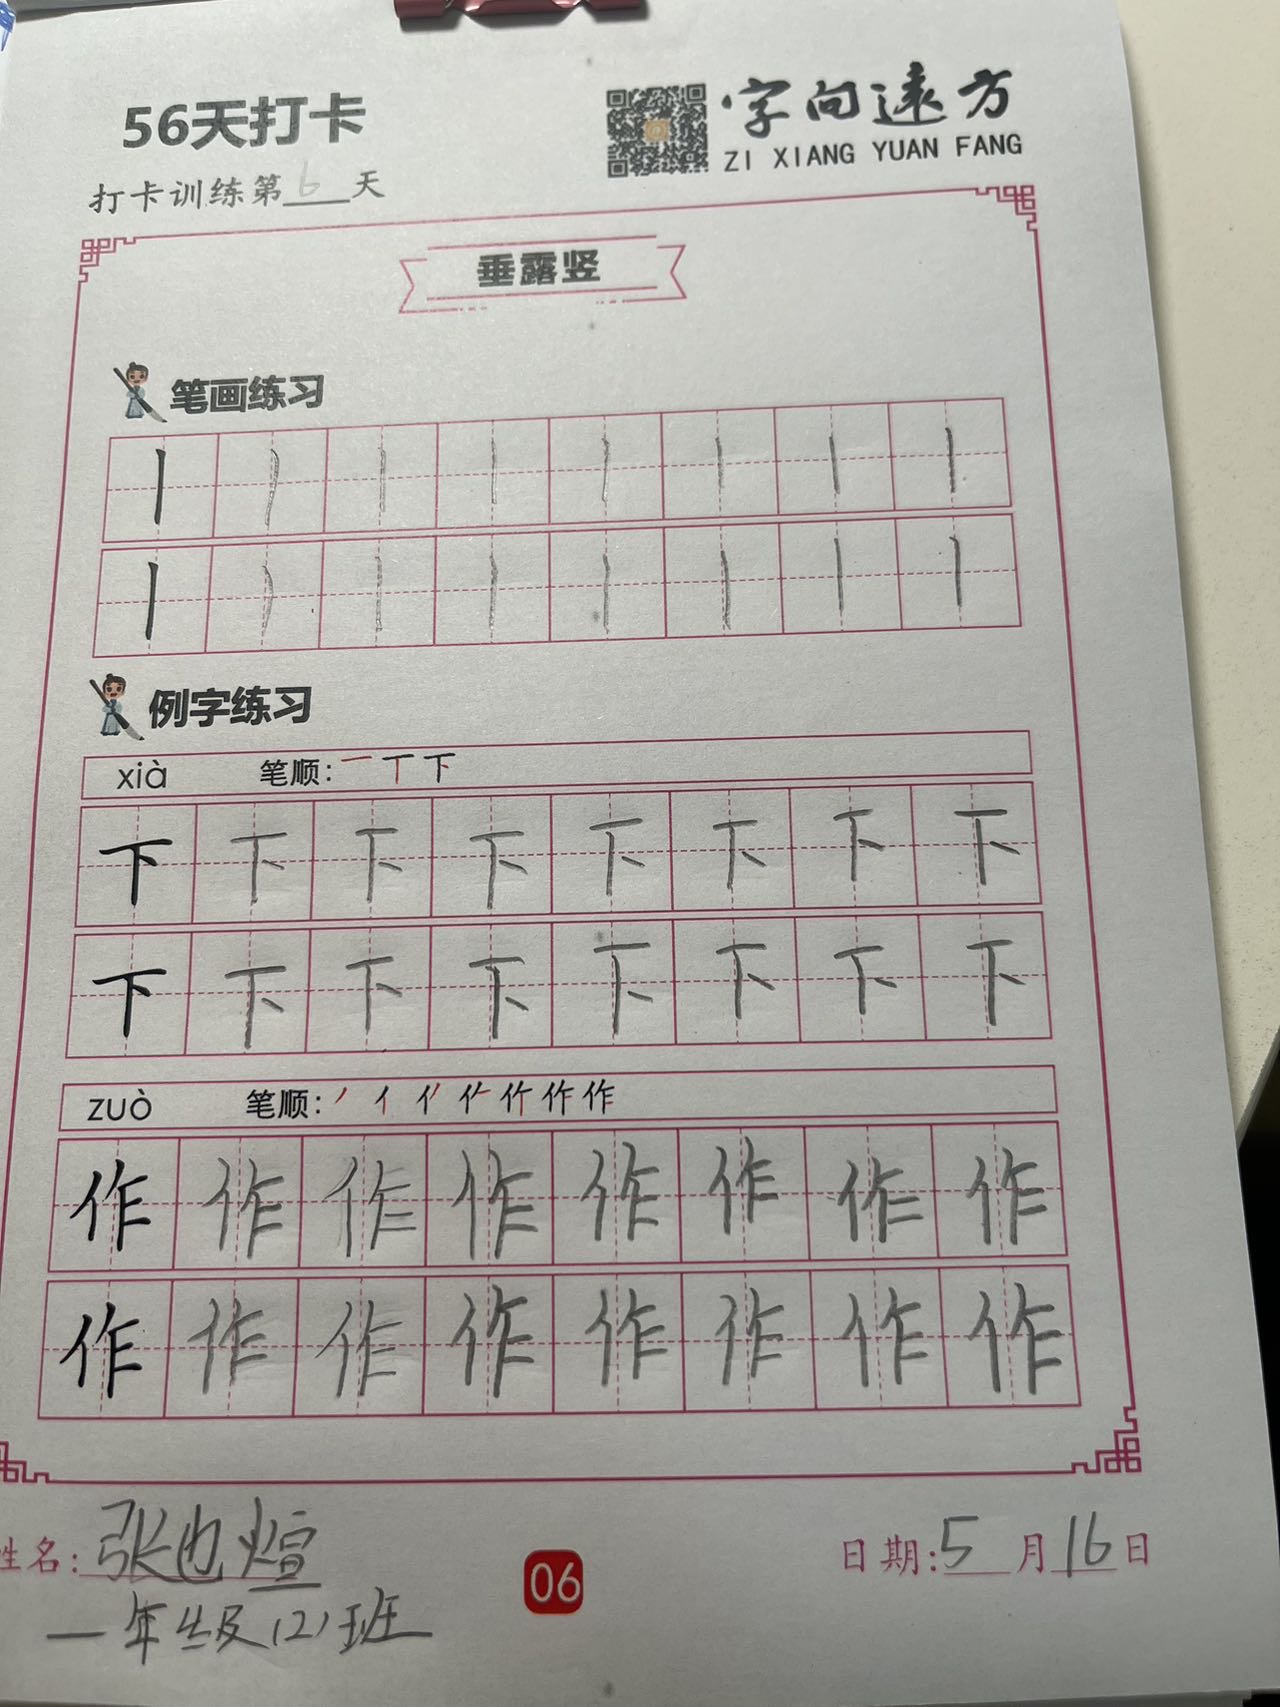 56天打卡
字向远方
ZI XIANG YUAN FANG
打卡训练第6天
垂露竖
笔画练习
丨 丨 丨 丨 丨 丨 丨 丨
丨 丨 丨 丨 丨 丨 丨 丨
例字练习
xià 笔顺: 一 丅 下
下 下 下 下 下 下 下 下
下 下 下 下 下 下 下 下
zuò 笔顺: 丿 亻 亻 作 作 作
作 作 作 作 作 作 作 作
作 作 作 作 作 作 作 作
姓名: 张也煊
日期:5月16日
一年级(2)班
06